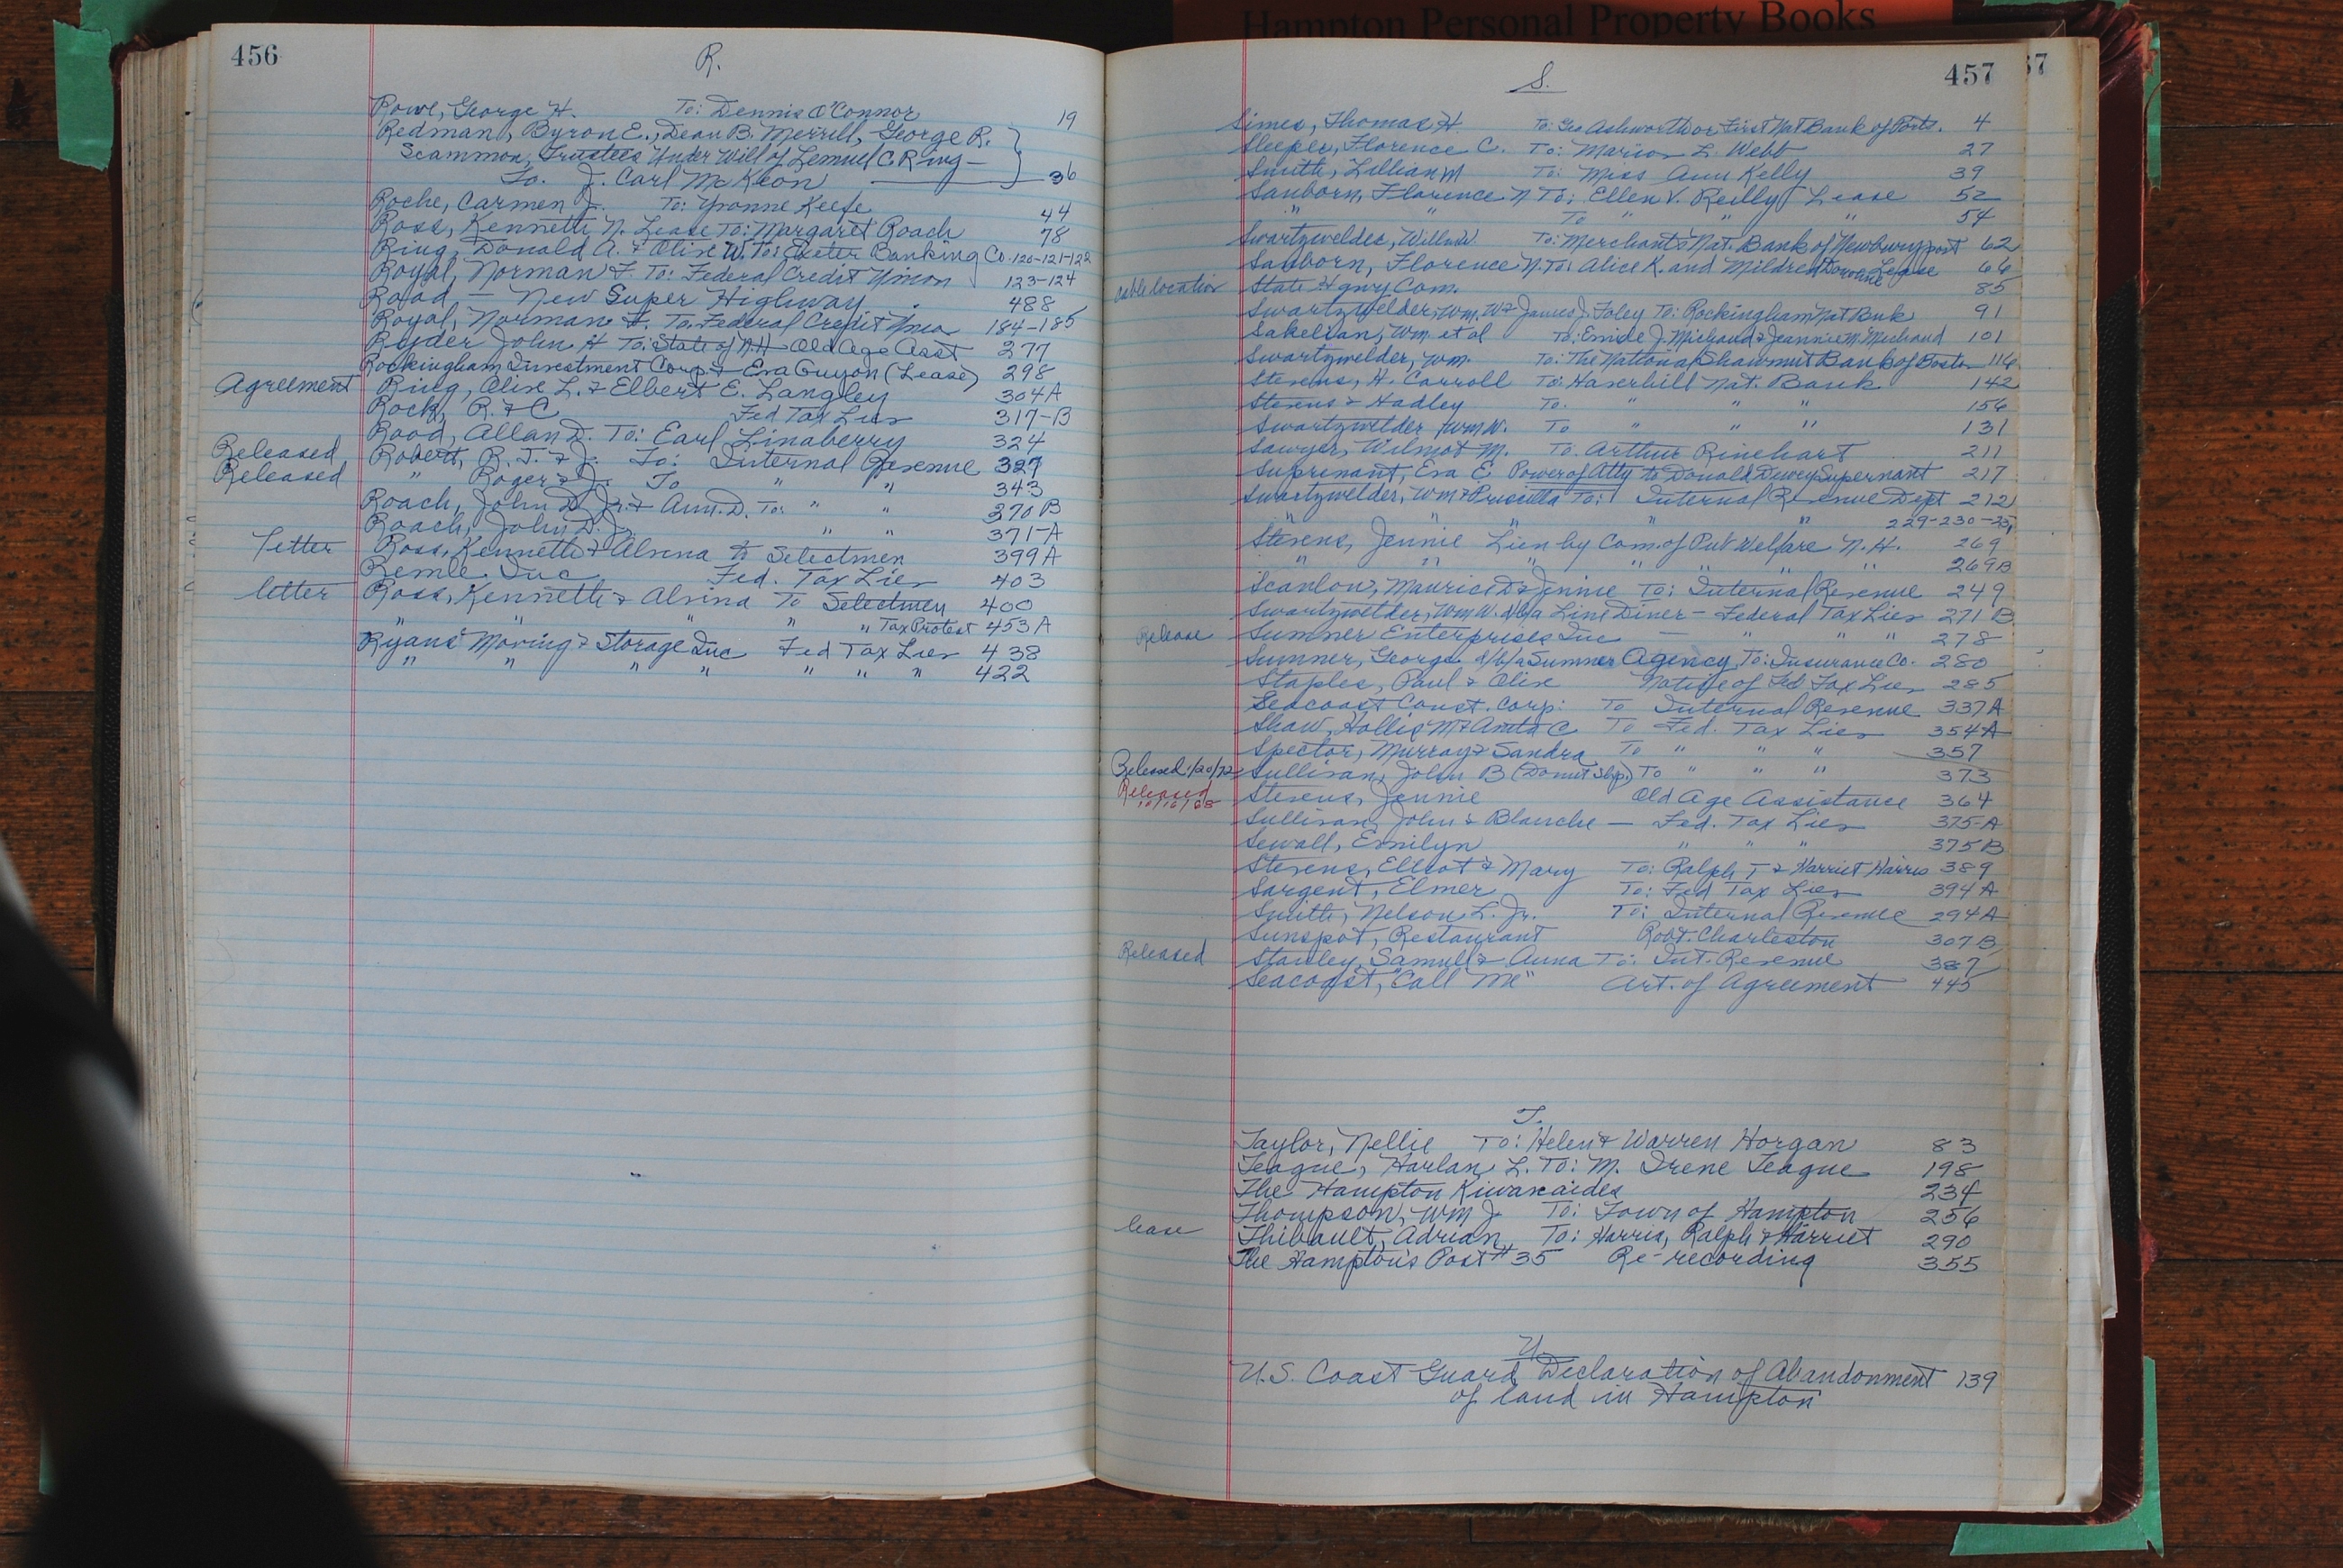 Hampton Personal Property Books
456
R.
Rowe, George H. To: Dennis O'Connor 19
Redman, Byron E., Dean B. Merrill, George R.
Scammon, Trustees Under Will of Lemuel C Ring —
To. J. Carl McKeon 36
Roche, Carmen J. To: Yvonne Keefe 44
Ross, Kenneth N. Lease To: Margaret Roach 78
Ring, Donald A. & Olive W. To: Exeter Banking Co. 120-121-122
Royal, Norman F. To: Federal Credit Union 123-124
Road — New Super Highway 488
Royal, Norman F. To. Federal Credit Union 184-185
Ryder John H To: State of N.H. Old Age Asst 277
Rockingham Investment Corp. & Eva Guyon (Lease) 298
Agreement Ring, Olive L. & Elbert E. Langley 304A
Rock, R. & C Fed Tax Lien 317-B
Rood, Allan D. To: Earl Linaberry 324
Released Robert, R. J. & J. To: Internal Revenue 327
Released " Roger & J. To " " 343
Roach, John D Jr. & Ann. D. To: " " 370 B
Roach, John D. Jr. " " 371-A
letter Ross, Kenneth & Alvina to Selectmen 399A
Remle Inc Fed. Tax Lien 403
letter Ross, Kenneth & Alvina To Selectmen 400
" " " " " Tax Protest 453 A
Ryans' Moving & Storage Inc Fed Tax Lien 438
" " " " " " " 422
457
37
S.
Simes, Thomas H. To: Geo Ashworth or First Nat Bank of Ports. 4
Sleeper, Florence C. To: Marion L. Webb 27
Smith, Lillian M To: Miss Ann Kelly 39
Sanborn, Florence N To: Ellen V. Reilly Lease 52
" " To " " " 54
Swartzwelder, Willm W. To: Merchants Nat. Bank of Newburyport 62
Sanborn, Florence N. To: Alice K. and Mildred Donovan Lease 66
cable location State Hgwy Com. 85
Swartzwelder, Wm. W & James J. Foley To: Rockingham Nat Bnk 91
Sakelian, Wm. et al To: Emile J. Michaud & Jeannie M. Michaud 101
Swartzwelder, Wm. To: The National Shawmut Bank of Boston 116
Stevens, H. Carroll To: Haverhill Nat. Bank 142
Stevens & Hadley To. " " " 156
Swartzwelder Wm W. To " " " 131
Sawyer, Wilmot M. To. Arthur Rinehart 211
Suprenant, Eva E. Power of Atty to Donald Dewey Supernant 217
Swartzwelder, Wm & Priscilla To: Internal Revenue Dept 212
" " " " " 229-230-231
Stevens, Jennie Lien by Com. of Pub Welfare N.H. 269
" " " " " " " 269B
Scanlon, Maurice D & Jennie To: Internal Revenue 249
Swartzwelder, Wm W. d/b/a Line Diner — Federal Tax Lien 271 B
Release Sumner Enterprises Inc — " " " 278
Sumner, George d/b/a Sumner Agency To: Insurance Co. 280
Staples, Paul & Olive Notice of Fed Tax Lien 285
Seacoast Const. Corp: To Internal Revenue 337A
Shaw, Hollis M & Anita C To Fed. Tax Lien 354A
Spector, Murray & Sandra To " " " 357
Released 1/20/72 Sullivan, John B (Donut Shp.) To " " " 373
Released 10/16/68 Stevens, Jennie Old Age Assistance 364
Sullivan, John & Blanche — Fed. Tax Lien 375-A
Sewall, Emilyn " " " 375B
Stevens, Elliot & Mary To: Ralph T & Harriet Harris 389
Sargent, Elmer To: Fed Tax Lien 394 A
Smith, Nelson L. Jr. To: Internal Revenue 294A
Sunspot, Restaurant Robt. Charleston 307B
Released Stanley, Samuel & Anna To: Int. Revenue 387
Seacoast, "Call Me" Art. of Agreement 445
T.
Taylor, Nellie To: Helen & Warren Horgan 83
Teague, Harlan L. To: M. Irene Teague 198
The Hampton Kiwanaides 234
Thompson, Wm J. To: Town of Hampton 256
lease Thibault, Adrian To: Harris, Ralph & Harriet 290
The Hampton's Post #35 Re-recording 355
U
U.S. Coast Guard Declaration of Abandonment 139
of land in Hampton